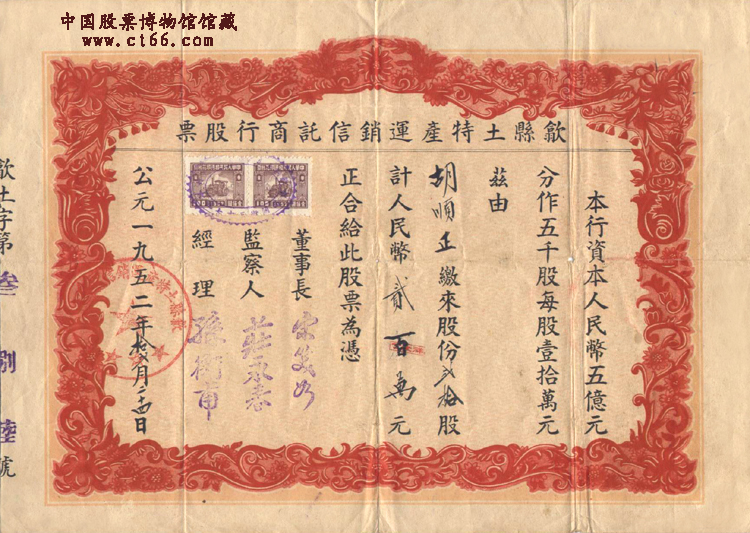 中国股票博物馆馆藏
www.ct66.com
歙縣土特產運銷信託商行股票
本行資本人民幣五億元
分作五千股每股壹拾萬元
茲由
胡順正繳來股份貳拾股
計人民幣貳百萬元
正合給此股票為憑
董事長
監察人
經理
公元一九五二年拾弍月二十四日
歙土字第叁捌陸號